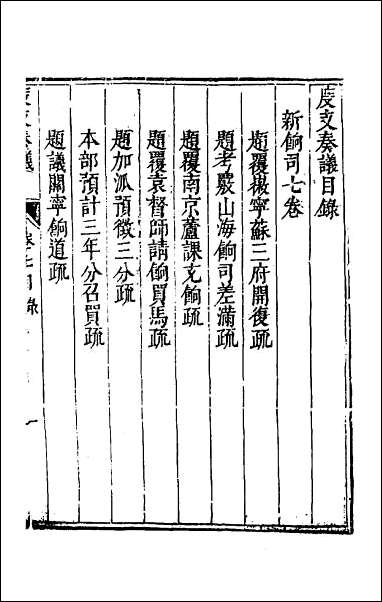 度支奏議目錄
新餉司七卷
題覆撥寧蘇二府開復疏
題考覈山海餉司差滿疏
題覆南京蘆課充餉疏
題覆袁督師請餉買馬疏
題加派預徵三分疏
本部預計三年分召買疏
題議關寧餉道疏
度支奏議 卷七目錄 一